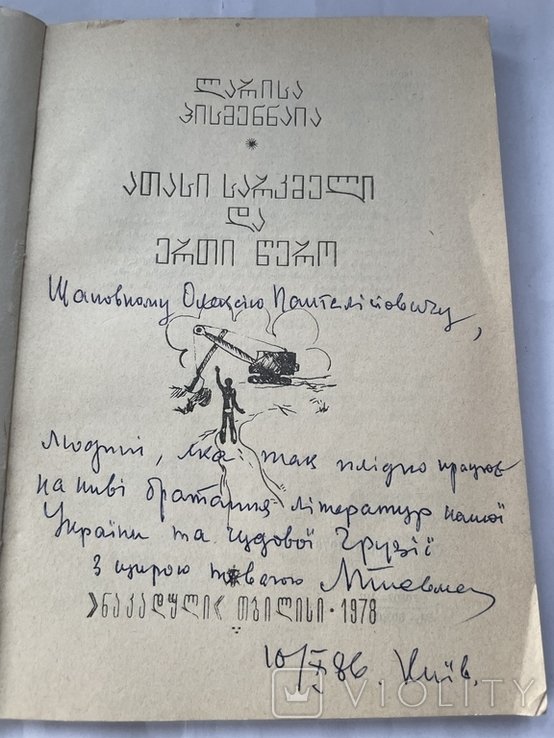 ლარისა
პისმენნაია
ათასი სარკმელი
და
ერთი წერო
Шановному Олексію Пантелійовичу,
людині, яка так плідно працює
на ниві братання літератур нашої
України та чудової Грузії
З щирою повагою
»ნაკადული« თბილისი · 1978
10/X 86. Київ.
VIOLITY